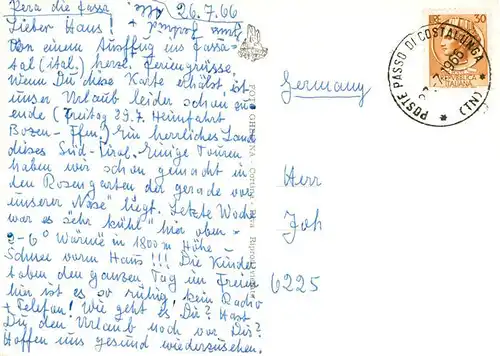 Pera di Fassa 26.7.66
Lieber Hans!
Von einem Ausflug ins Fassa-
tal (ital.) herzl. Feriengrüsse.
Wenn Du diese Karte erhälst ist
unser Urlaub leider schon zu
ende (Freitag 29.7. Heimfahrt
Bozen - Ffm.) Ein herrliches Land
dieses Süd-Tirol. Einige Touren
haben wir schon gemacht in
den Rosengarten der gerade vor
unserer Nase" liegt. Letzte Woche
war es "sehr kühl" hier oben -
2-6° Wärme in 1800 m Höhe -
Schnee vorm Haus!!! Die Kinder
toben den ganzen Tag im Freien
hier ist es so ruhig kein Radio
+ Telefon! Wie geht es Dir? Hast
Du den Urlaub noch vor Dir?
Hoffen uns gesund wiederzusehen.
Germany
Herr
Joh
6225
30
REPUBBLICA
ITALIANA
POSTE PASSO DI COSTALUNGA
(TN)